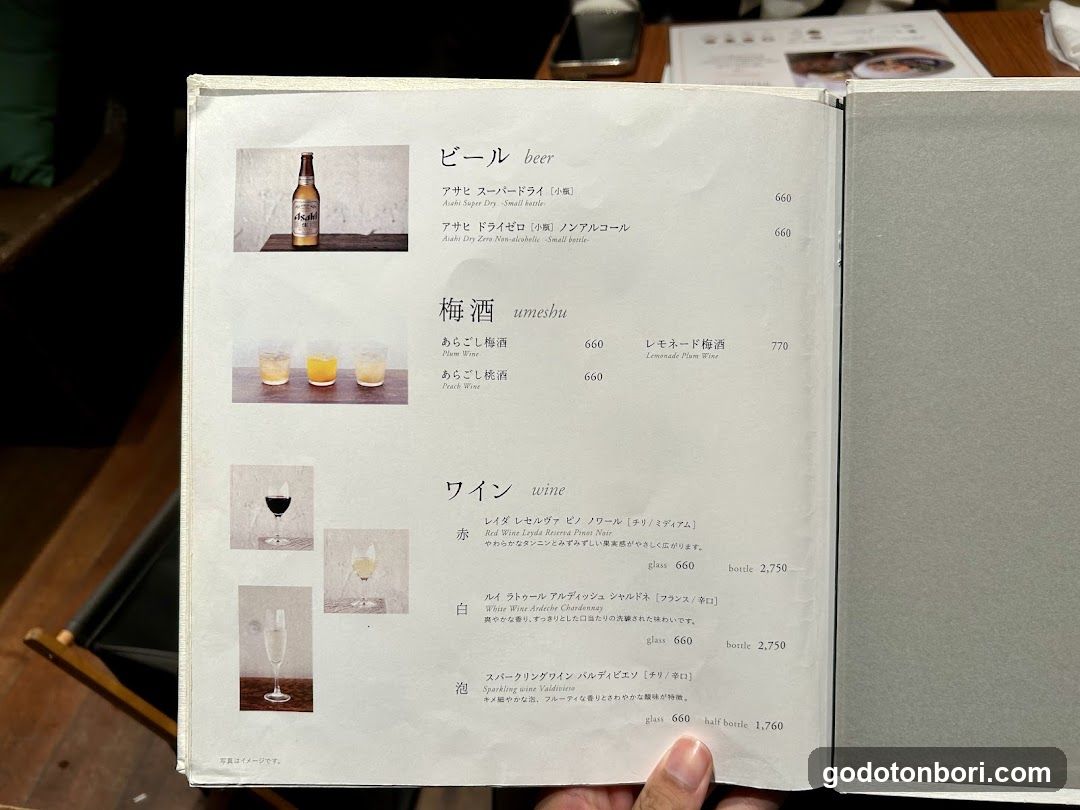 ビール beer
アサヒ スーパードライ [小瓶] 660
Asahi Super Dry -Small bottle-
アサヒ ドライゼロ [小瓶] ノンアルコール 660
Asahi Dry Zero Non-alcoholic -Small bottle-
Asahi
梅酒 umeshu
あらごし梅酒 660 レモネード梅酒 770
Plum Wine Lemonade Plum Wine
あらごし桃酒 660
Peach Wine
ワイン wine
赤 レイダ レセルヴァ ピノ ノワール [チリ / ミディアム]
Red Wine Leyda Reserva Pinot Noir
やわらかなタンニンとみずみずしい果実感がやさしく広がります。
glass 660 bottle 2,750
白 ルイ ラトゥール アルディッシュ シャルドネ [フランス / 辛口]
White Wine Ardeche Chardonnay
爽やかな香り、すっきりとした口当たりの洗練された味わいです。
glass 660 bottle 2,750
泡 スパークリングワイン バルディビエソ [チリ / 辛口]
Sparkling wine Valdivieso
キメ細やかな泡、フルーティな香りとさわやかな酸味が特徴。
glass 660 half bottle 1,760
写真はイメージです。
godotonbori.com